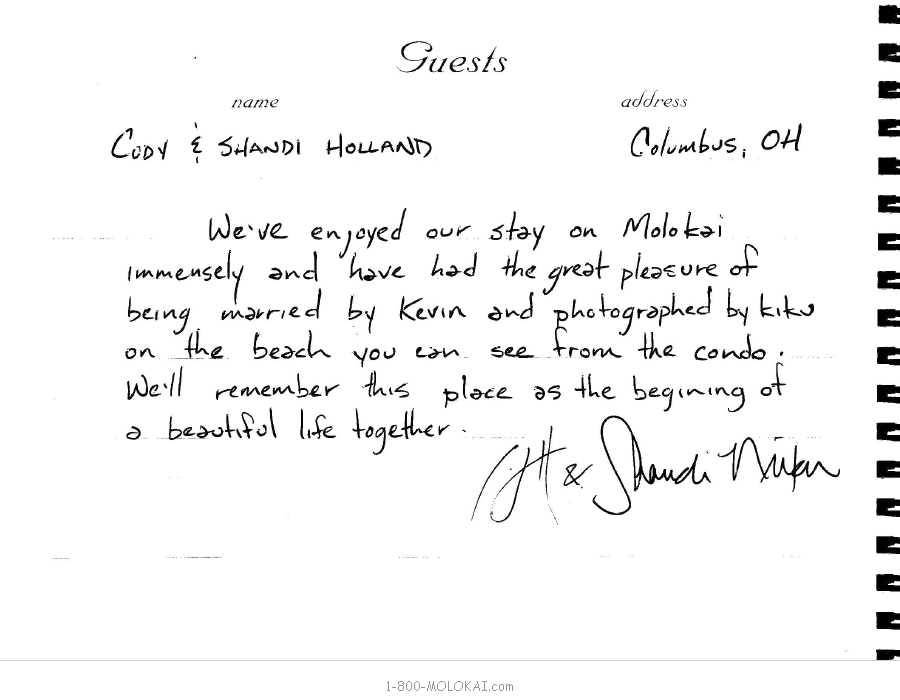 Guests
name address
Cody & Shandi Holland Columbus, OH
We've enjoyed our stay on Molokai
immensely and have had the great pleasure of
being married by Kevin and photographed by kiku
on the beach you can see from the condo.
We'll remember this place as the begining of
a beautiful life together.
& Shandi
1-800-MOLOKAI.com